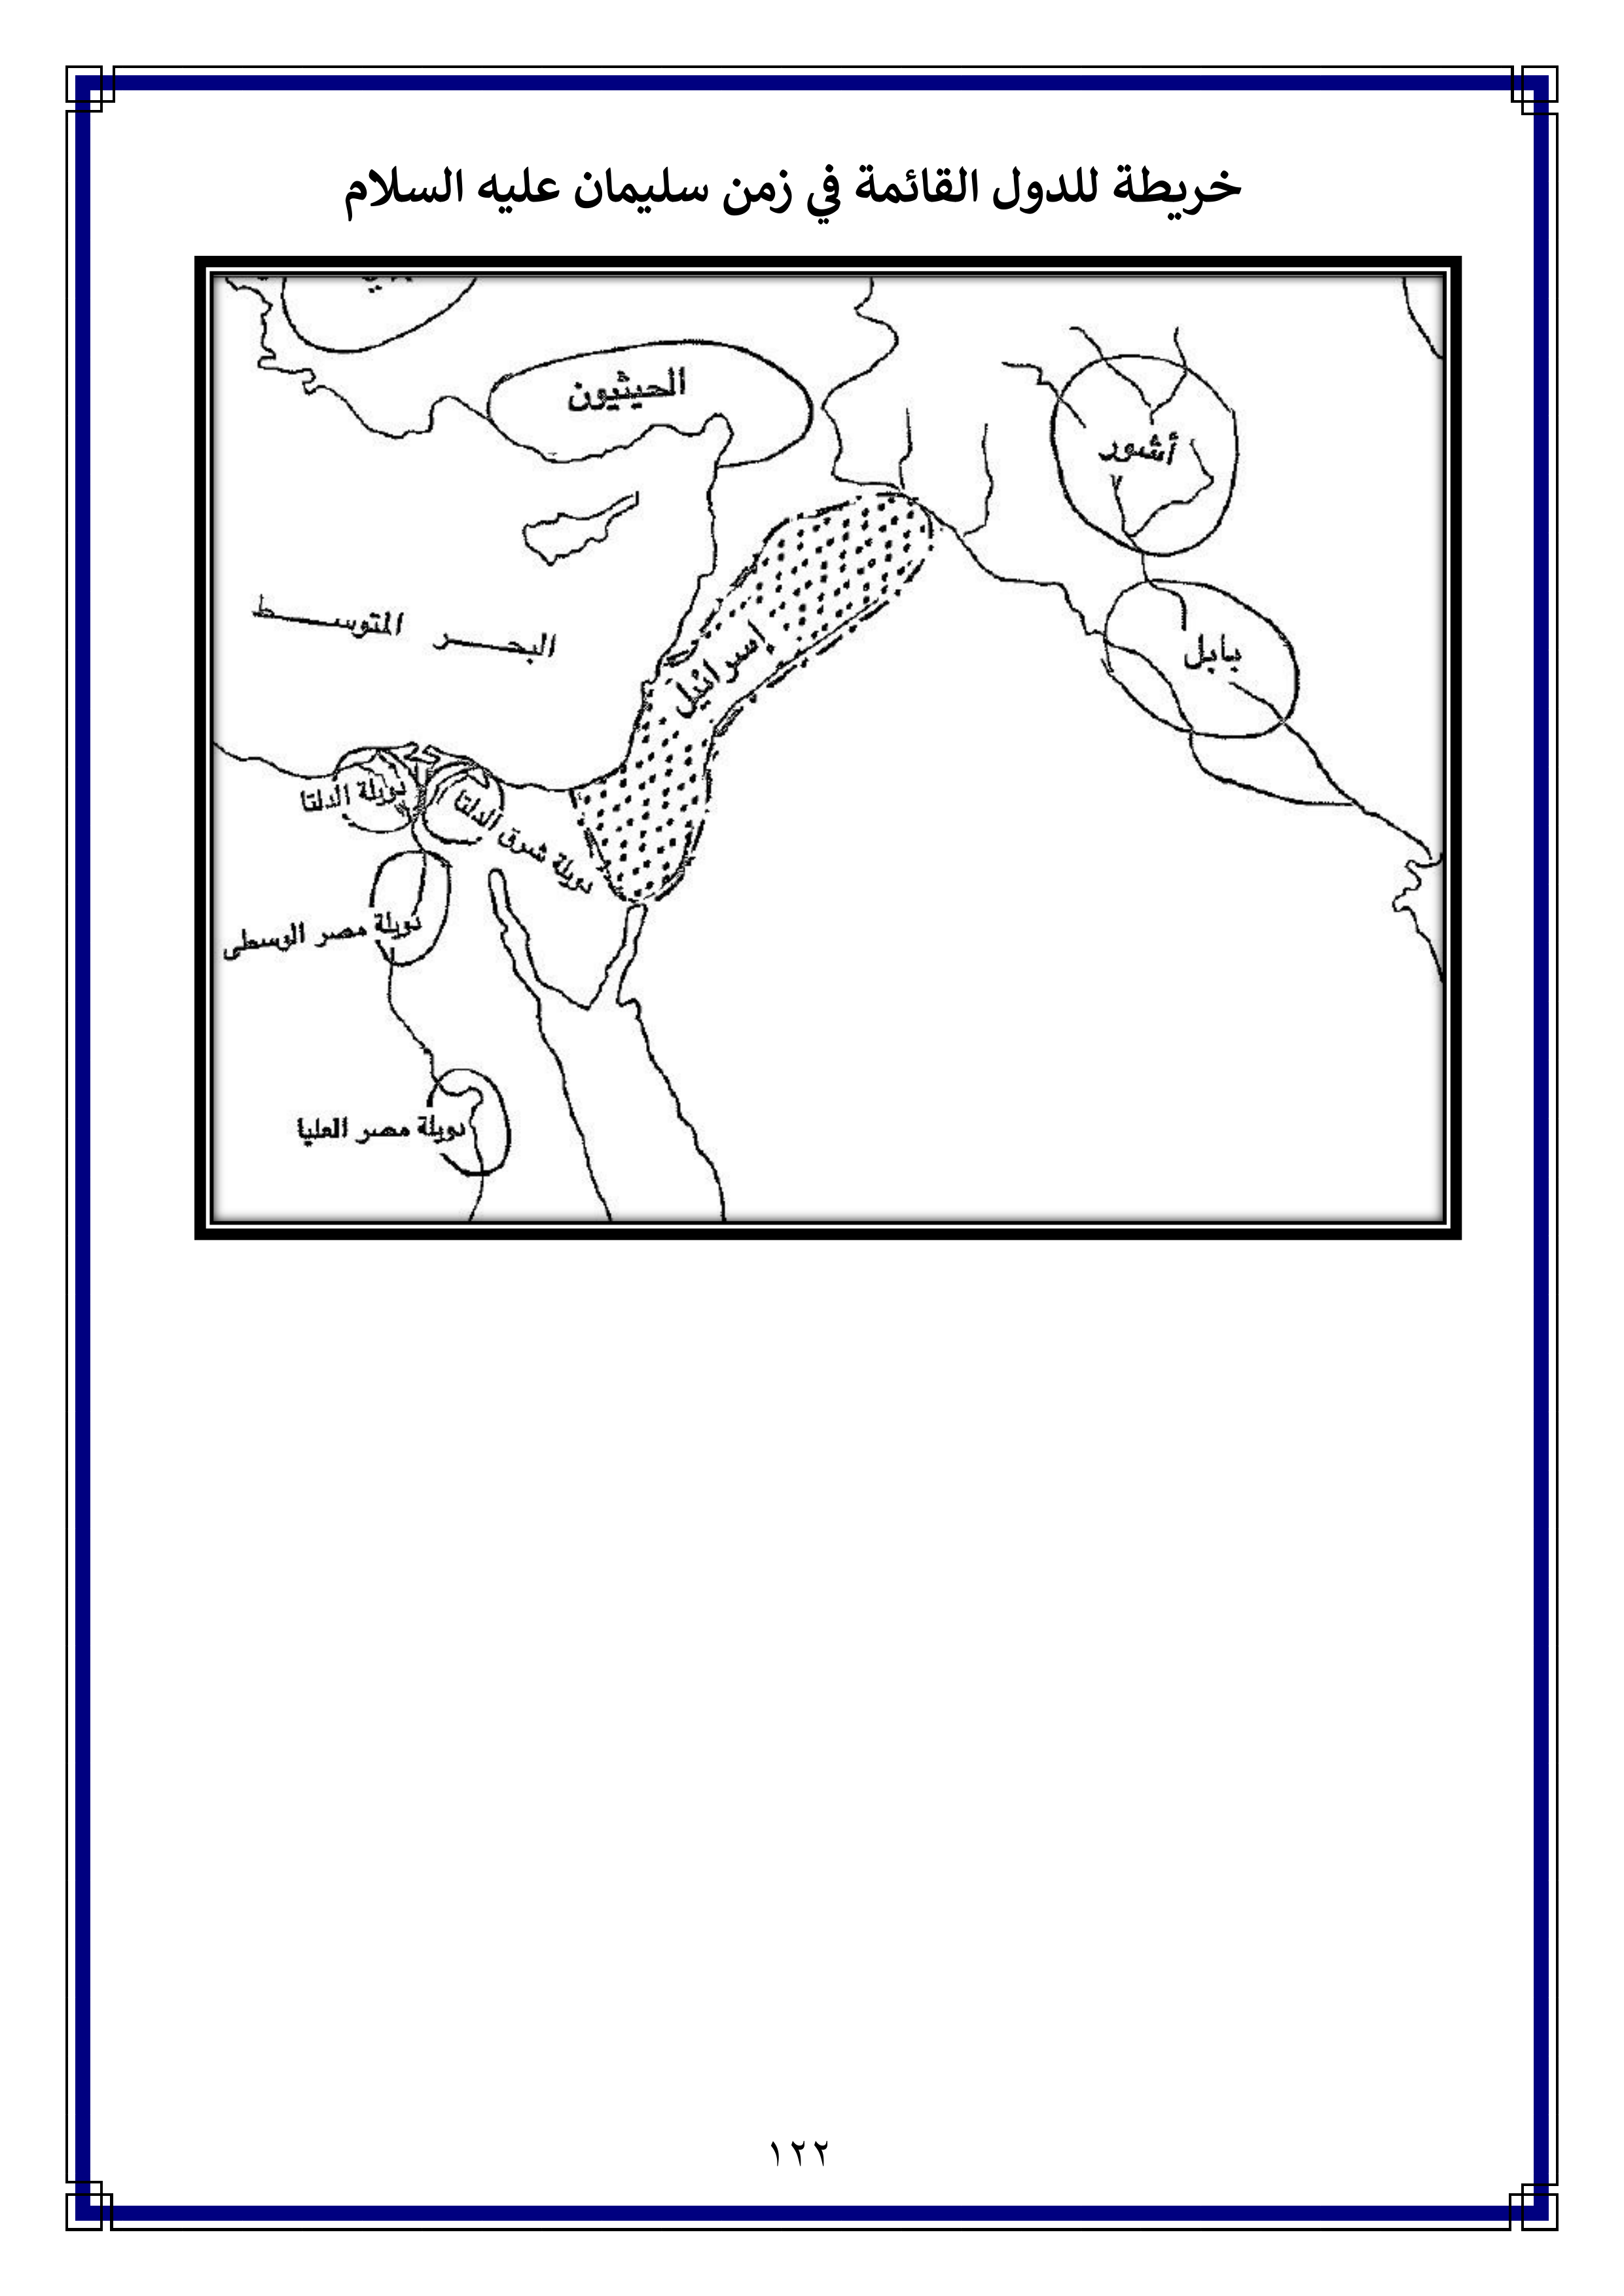 خريطة للدول القائمة في زمن سليمان عليه السلام
الحيثيون
أشور
البحر المتوسط
إسرائيل
بابل
دويلة الدلتا
دويلة شرق الدلتا
دويلة مصر الوسطى
دويلة مصر العليا
١٢٢